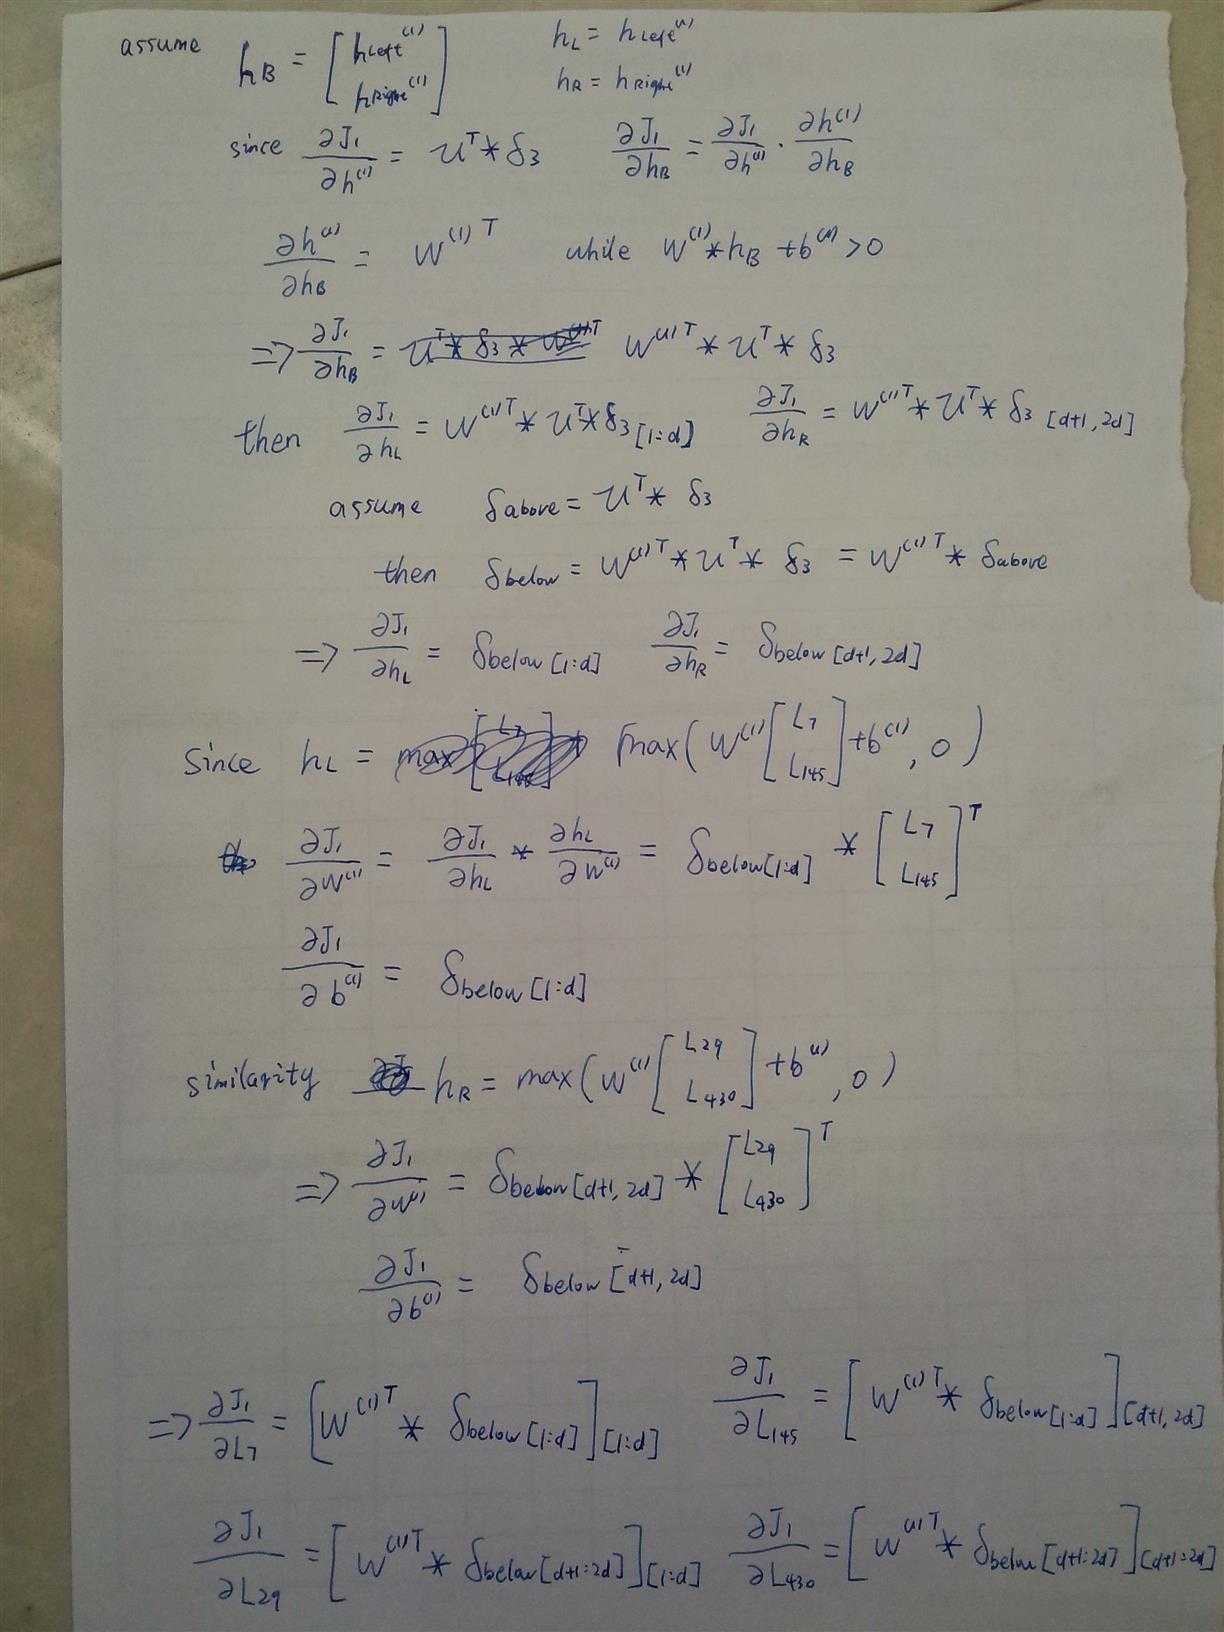 assume h_B = [h_Left^(1) h_Right^(1)] h_L = h_Left^(1)
h_R = h_Right^(1)
since ∂J₁/∂h^(1) = U^T * δ₃ ∂J₁/∂h_B = ∂J₁/∂h^(1) · ∂h^(1)/∂h_B
∂h^(1)/∂h_B = W^(1)T while W^(1) * h_B + b^(1) > 0
=> ∂J₁/∂h_B = U^T * δ₃ * W^(1)T W^(1)T * U^T * δ₃
then ∂J₁/∂h_L = W^(1)T * U^T * δ₃ [1:d] ∂J₁/∂h_R = W^(1)T * U^T * δ₃ [d+1, 2d]
assume δ_above = U^T * δ₃
then δ_below = W^(1)T * U^T * δ₃ = W^(1)T * δ_above
=> ∂J₁/∂h_L = δ_below [1:d] ∂J₁/∂h_R = δ_below [d+1, 2d]
since h_L = max( W^(1) [L_7 L_145] + b^(1), 0 )
∂J₁/∂W^(1) = ∂J₁/∂h_L * ∂h_L/∂W^(1) = δ_below[1:d] * [L_7 L_145]^T
∂J₁/∂b^(1) = δ_below [1:d]
similarity h_R = max( W^(1) [L_29 L_430] + b^(1), 0 )
=> ∂J₁/∂W^(1) = δ_below [d+1, 2d] * [L_29 L_430]^T
∂J₁/∂b^(1) = δ_below [d+1, 2d]
=> ∂J₁/∂L_7 = [W^(1)T * δ_below [1:d]] [1:d] ∂J₁/∂L_145 = [W^(1)T * δ_below [1:d]] [d+1, 2d]
∂J₁/∂L_29 = [W^(1)T * δ_below [d+1:2d]] [1:d] ∂J₁/∂L_430 = [W^(1)T * δ_below [d+1:2d]] [d+1:2d]